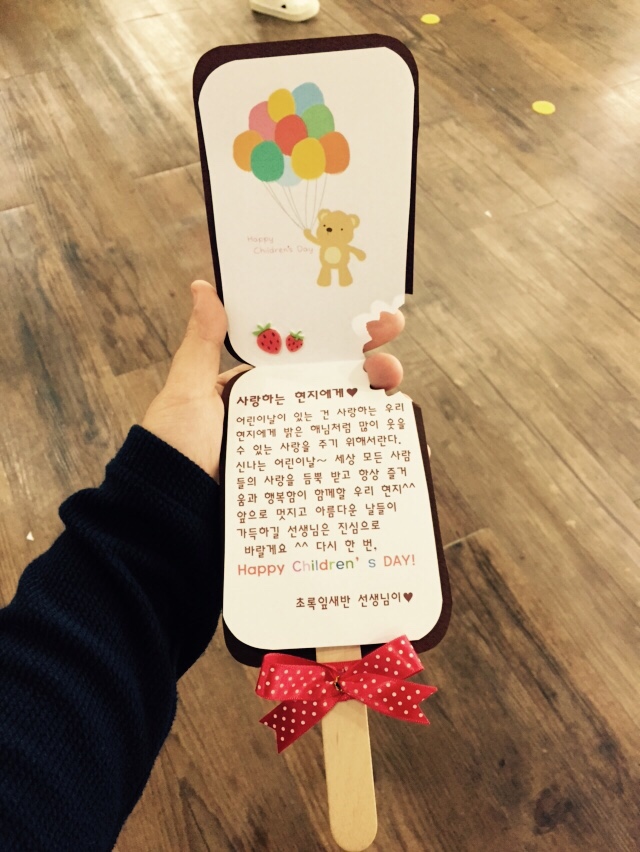 Happy
Children's Day
사랑하는 현지에게♥
어린이날이 있는 건 사랑하는 우리
현지에게 밝은 해님처럼 많이 웃을
수 있는 사랑을 주기 위해서란다.
신나는 어린이날~ 세상 모든 사람
들의 사랑을 듬뿍 받고 항상 즐거
움과 행복함이 함께할 우리 현지^^
앞으로 멋지고 아름다운 날들이
가득하길 선생님은 진심으로
바랄게요 ^^ 다시 한 번,
Happy Children's DAY!
초록잎새반 선생님이♥